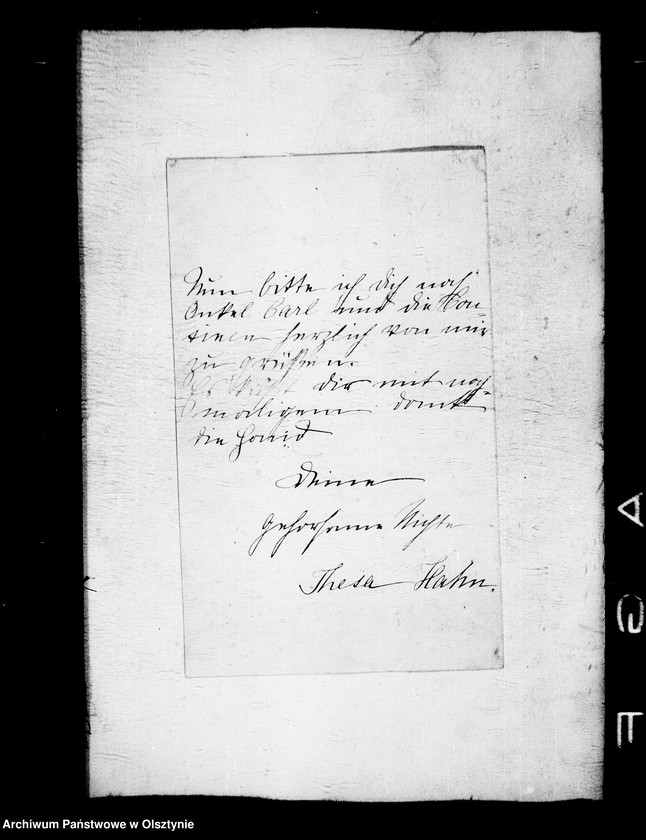 Nun bitte ich Dich noch
Onkel Carl und die Cou-
sinen herzlich von mir
zu grüßen.
Es küßt Dir mit noch-
maligem Dank
die Hand
Deine
gehorsame Nichte
Thesa Hahn.
Archiwum Państwowe w Olsztynie
A G F